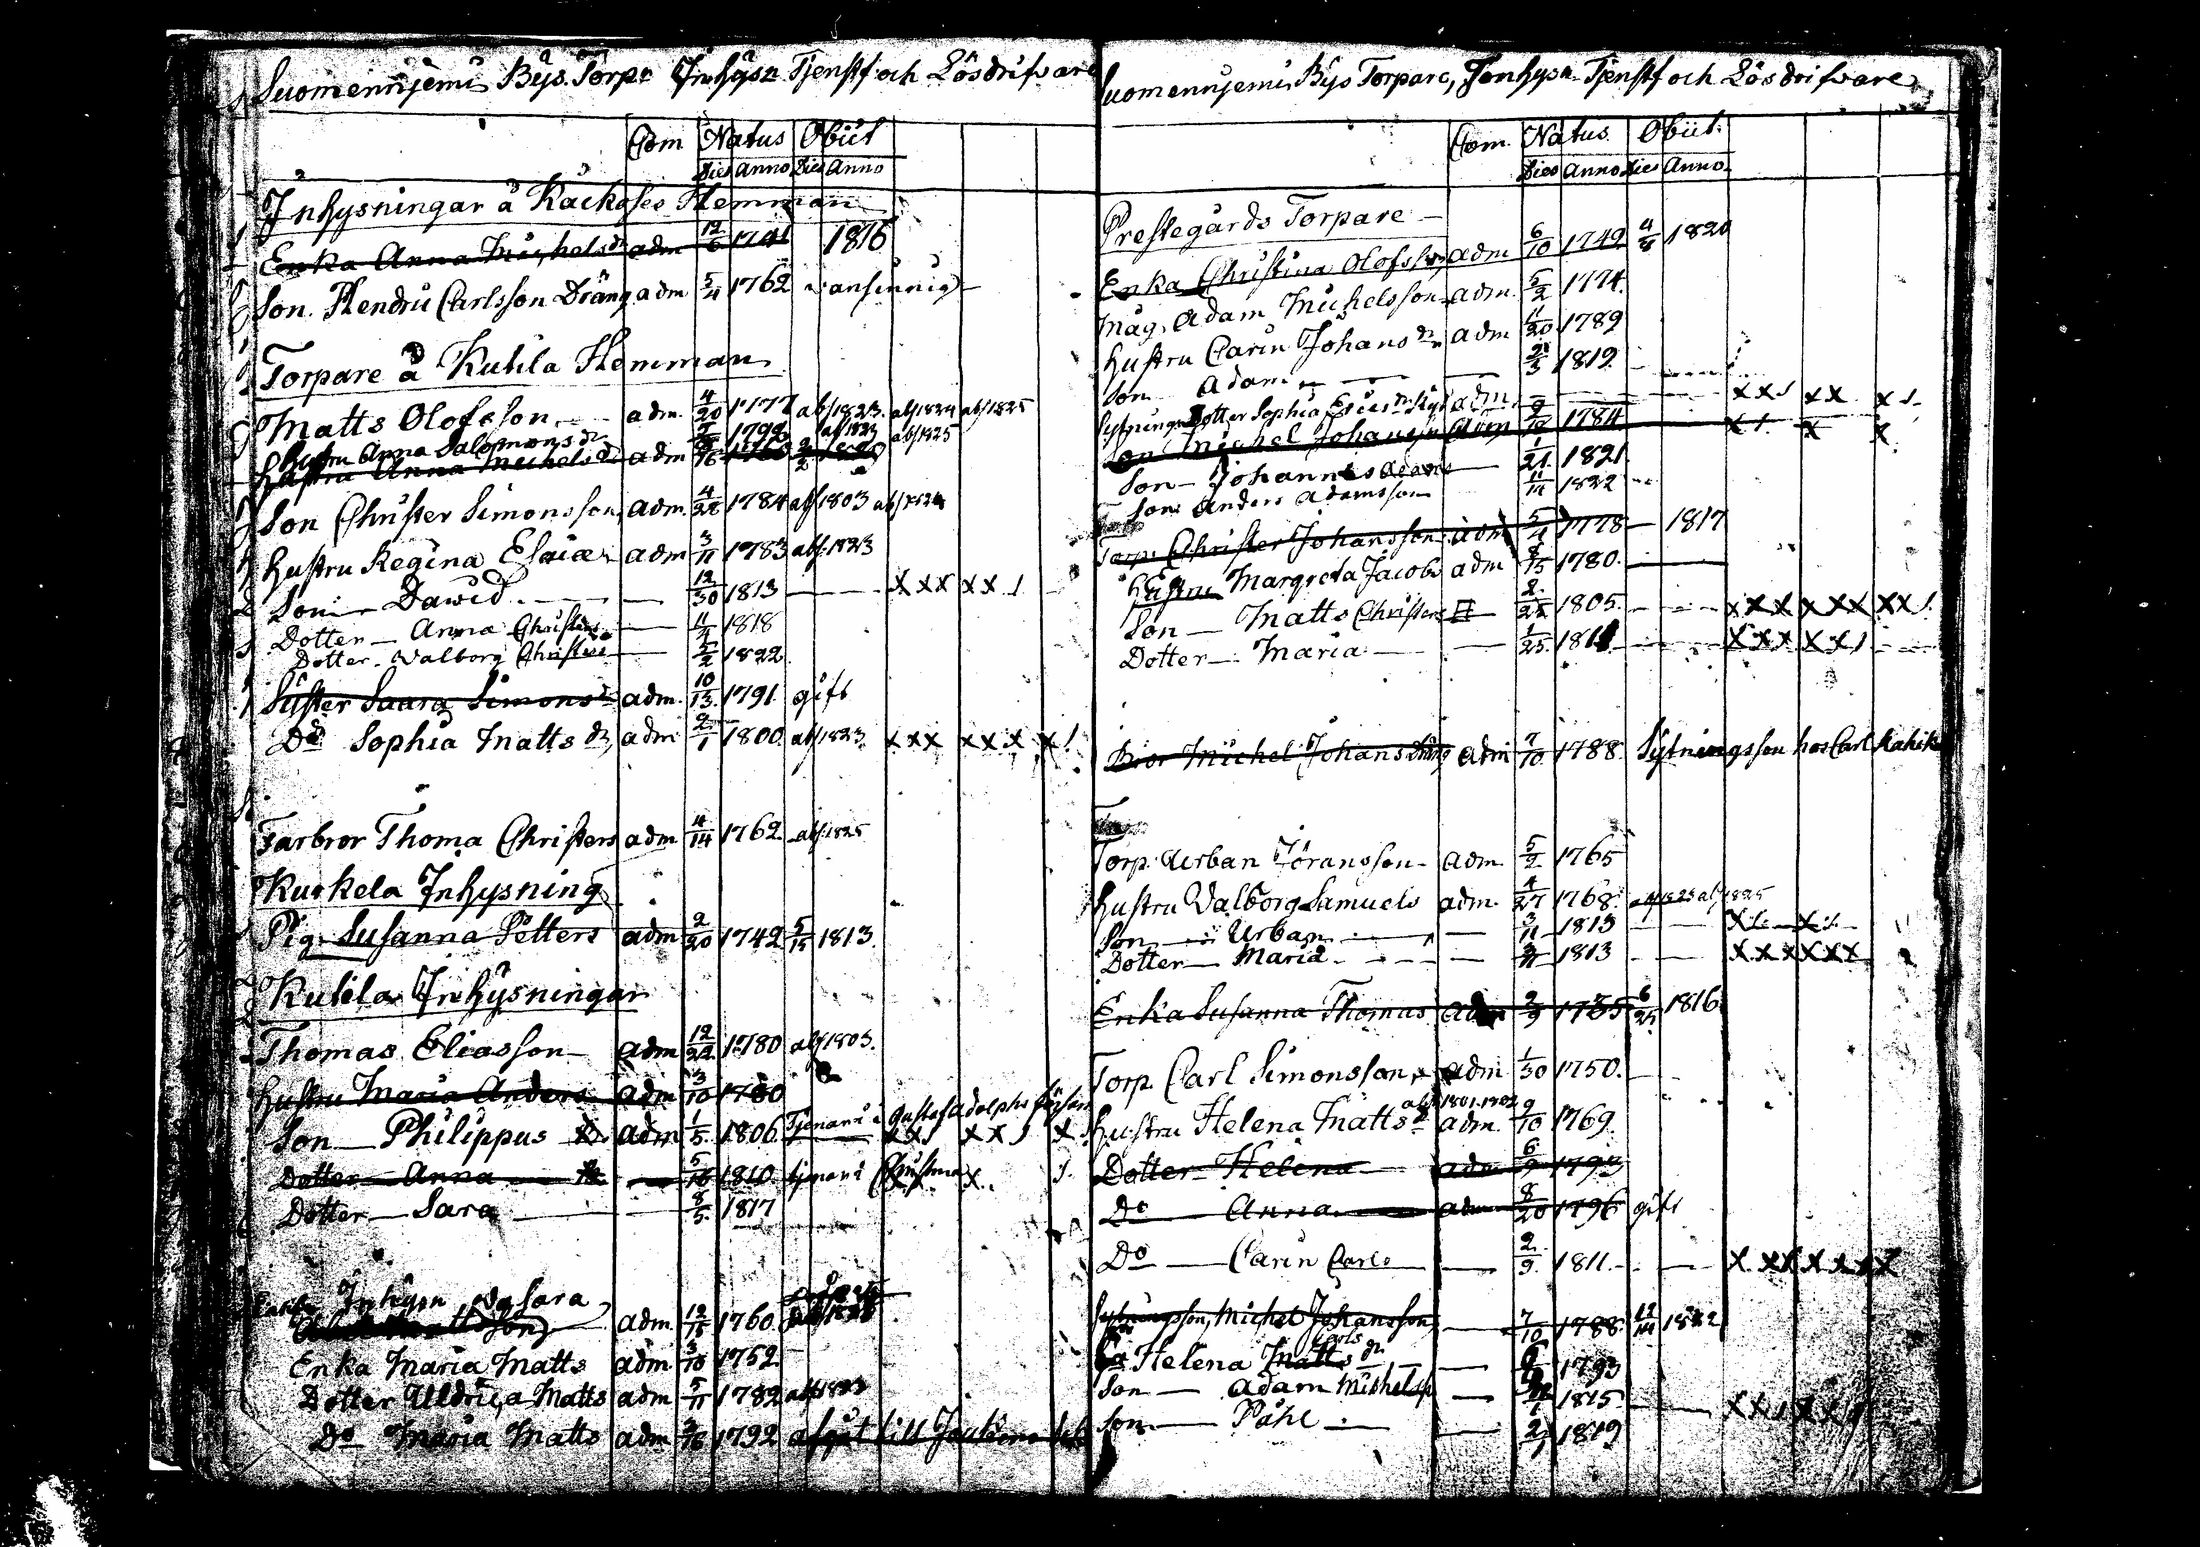 Suomenniemi Bys Torp: Inhysn Tjenstf och Lösdrifvare
Com Natus Obiit
Dies Anno Dies Anno
Inhysningar å Hemman
Enka Anna Michelsdr adm 12/6 1741 1816
Son Hendric Carlsson Dräng adm 5/4 1762 vansinnig
Torpare å Kutila Hemman
Matts Olofsson adm. 4/20 1777 abs 1823. abs 1824 abs 1825
Hustru Anna Salomonsdr 1792 abs 1823 abs 1825
Hustru Anna Michelsdr adm
Son Christer Simonsson adm 4/22 1784 abs 1803 abs 1824
Hustru Regina Esaiæ adm 3/11 1783 abs 1823
Son Dawid 12/30 1813 xxx xx
Dotter Anna Christers 11/4 1818
Dotter Walborg Christers 5/2 1822
Syster Saara Simonsdr adm. 10/13 1791 gift
Do Sophia Mattsdr adm 2/1 1800 abs 1823 xxx xxx x
Farbror Thoma Christers adm 4/14 1762 abs 1825
Kurkela Inhysning
Pig. Susanna Petters adm 2/20 1742 5/15 1813.
Kutila Inhysningar
Thomas Eliasson adm 12/22 1780 abs 1803.
Hustru Maria Anders adm 3/10 1780
Son Philippus adm 1/5 1806 Tjenar i Gustaf Adolphs
Dotter Anna 5/16 1810 tjenar i Christina
Dotter Sara 8/5 1817
Enka Inhysn Sara adm. 12/15 1760
Enka Maria Matts adm 3/18 1752
Dotter Uldrica Matts adm 5/11 1782 abs 1823
Do Maria Matts adm 3/16 1792 afgått till
Suomenniemi Bys Torpare, Inhysn Tjenstf och Lösdrifvare
Com. Natus Obiit
Dies Anno Dies Anno
Prestegårds Torpare
Enka Christina Olofsdr adm 6/10 1749 4/8 1820
Måg. Adam Michelsson adm. 5/2 1774.
Hustru Carin Johansdr adm 11/20 1789
Son Adam 1819
Sytnings Dotter Sophia Ericsdr adm. xx xx x
Son Michel Johansson adm 1784 x x x
Son Johannes Adams 1/21 1821
Son Anders Adamsson 11/14 1822
Torp. Christer Johansson adm 5/4 1778 1817
Hustru Margreta Jacobs adm 8/15 1780.
Son Matts Christers 2/22 1805 xxx xxx xx
Dotter Maria 1/25 1811 xxx xx
Bror Michel Johans Dräng adm 7/10 1788. Sytningsson hos Carl
Torp. Urban Jöransson adm. 5/2 1765
Hustru Valborg Samuels adm. 4/27 1768. abs 1823 abs 1825
Son Urban 3/11 1813 x x
Dotter Maria 3/11 1813 xxxxxx
Enka Susanna Thomas adm 2/9 1735 6/25 1816
Torp. Carl Simonsson adm 1/30 1750.
Hustru Helena Mattsdr adm. abs 1801. 1802 9/10 1769
Dotter Helena adm 6/9 1793
Do Anna adm 8/20 1796 gift
Do Carin Carls 2/9 1811. x xxxxxx
Sytningsson, Michel Johansson 7/10 1788. 12/14 1822
Helena Carlsdr 6/9 1793
Son Adam Michelss 1815 xx xx
Son Påhl 2/1 1819